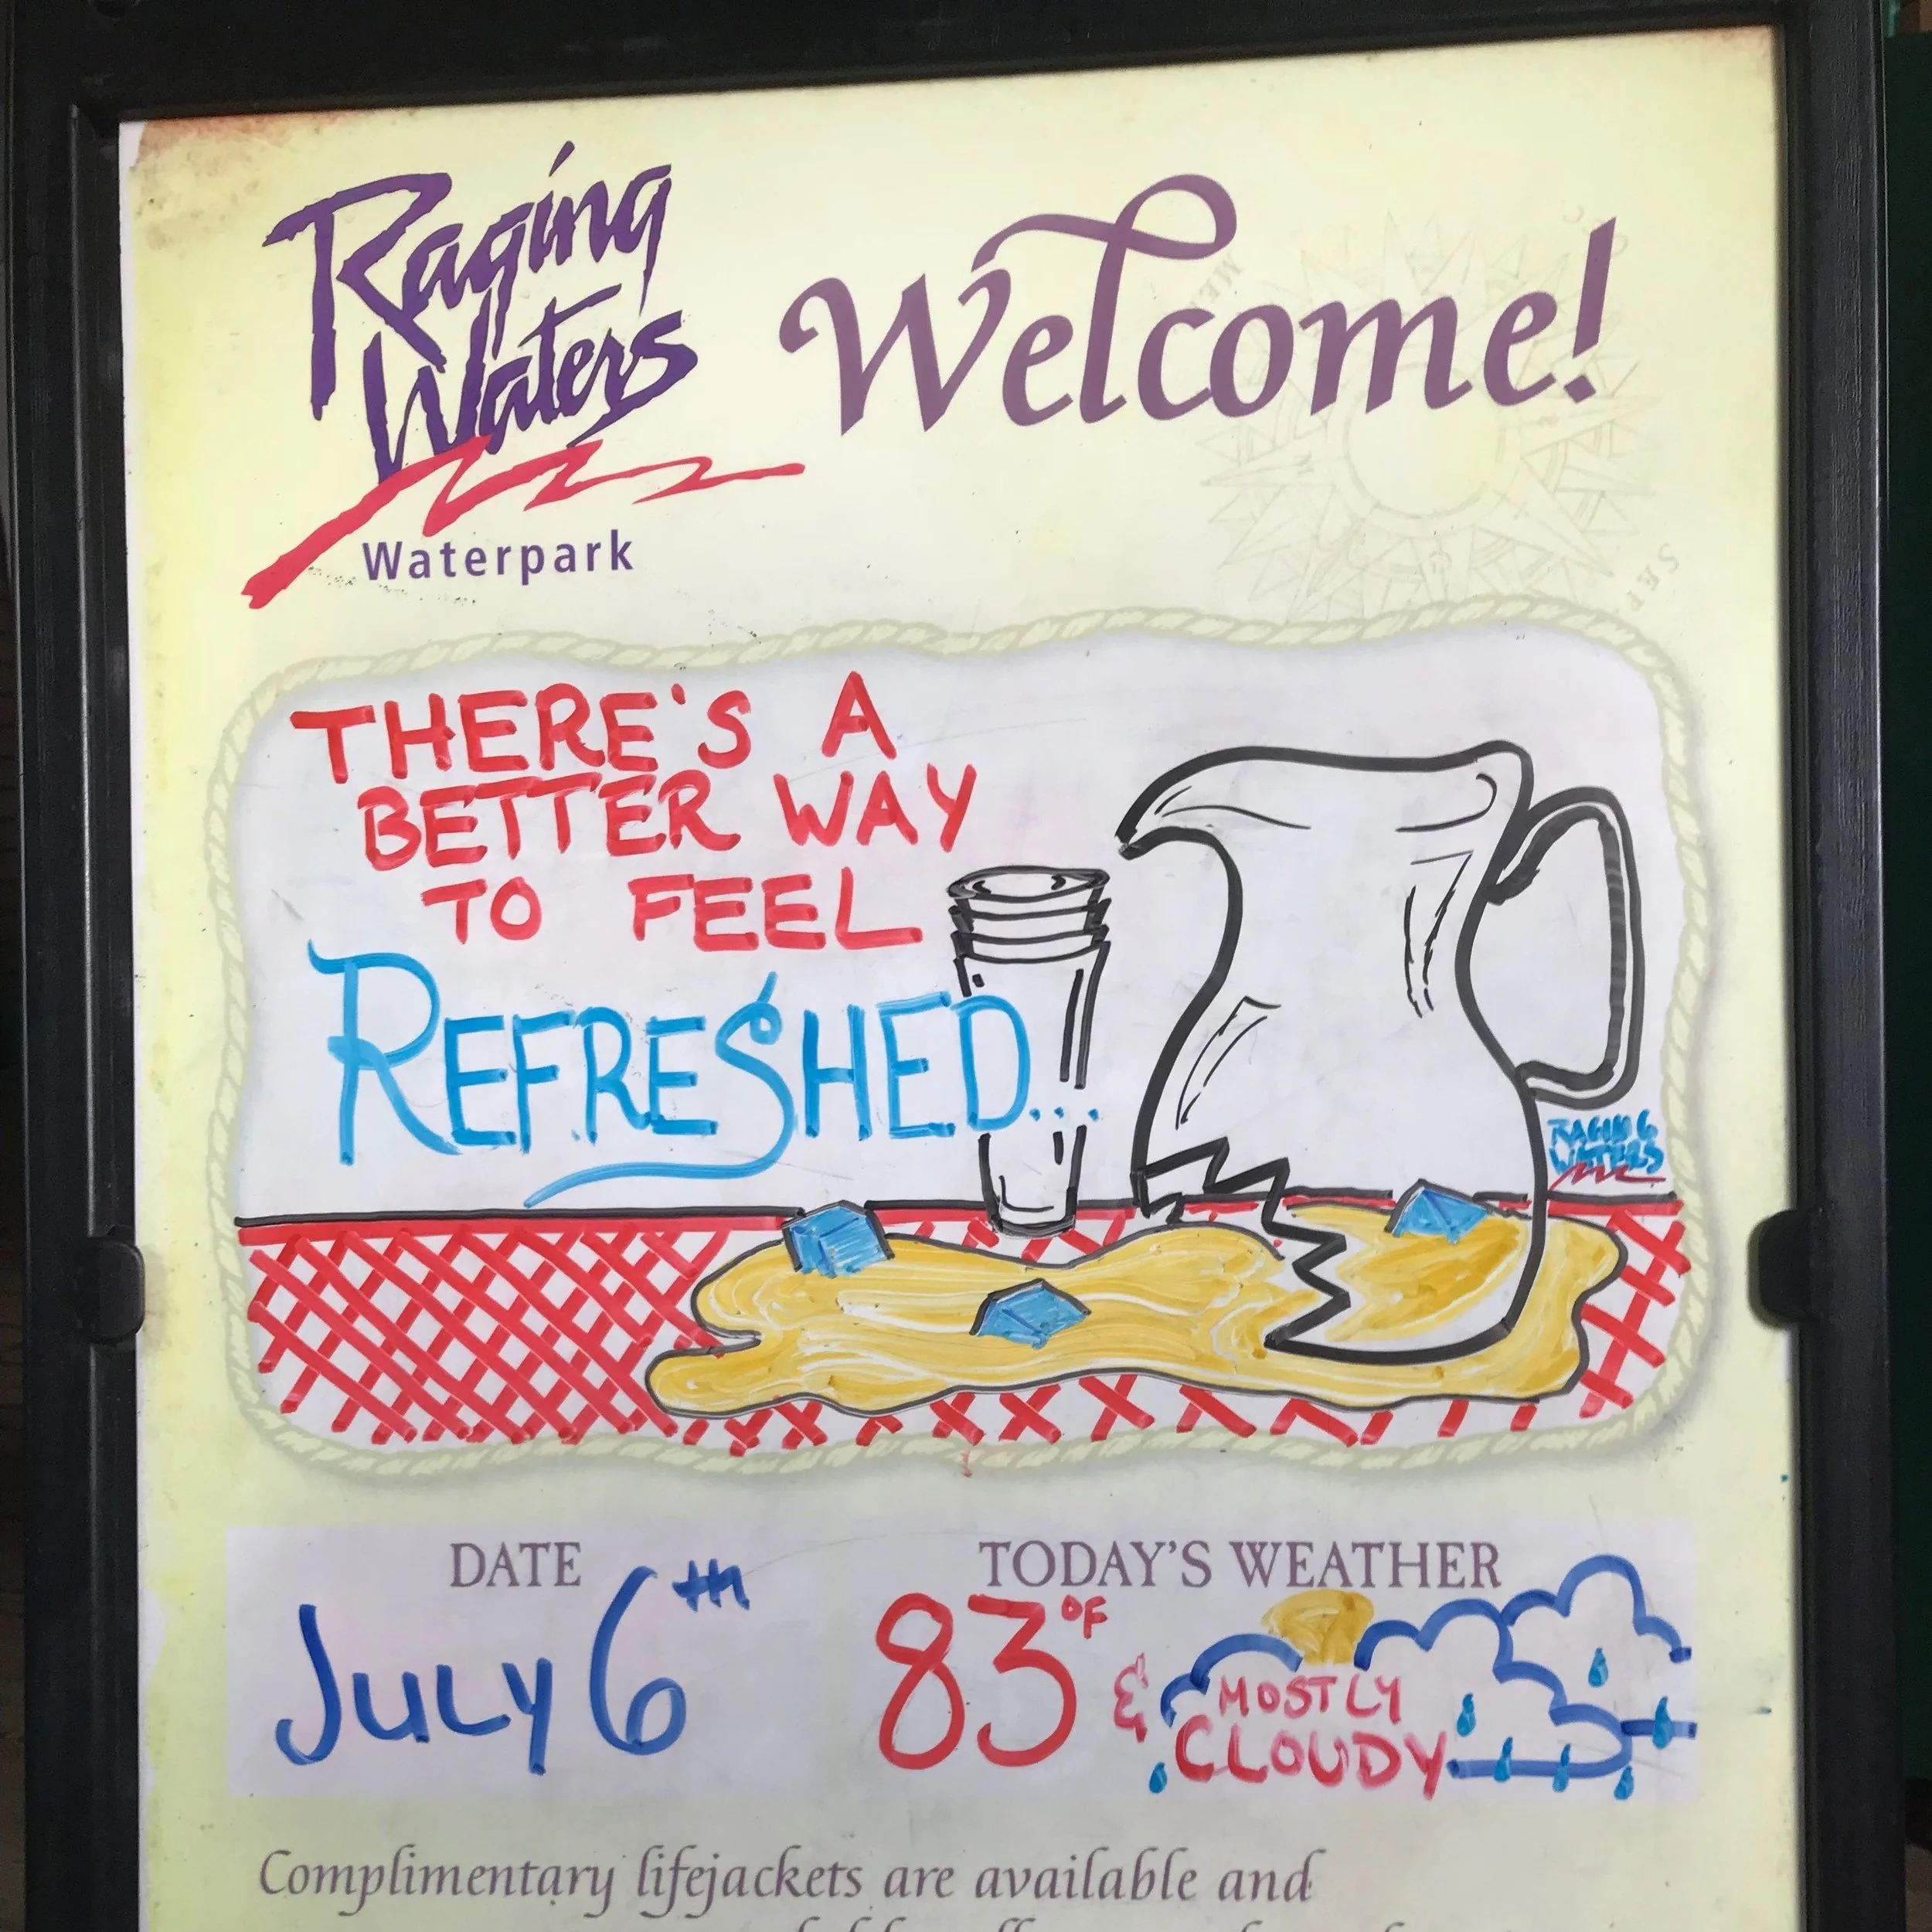 Raging
Waters
Waterpark
Welcome!
THERE'S A
BETTER WAY
TO FEEL
REFRESHED...
RAGING
WATERS
DATE
JULY 6TH
TODAY'S WEATHER
83°F & MOSTLY
CLOUDY
Complimentary lifejackets are available and